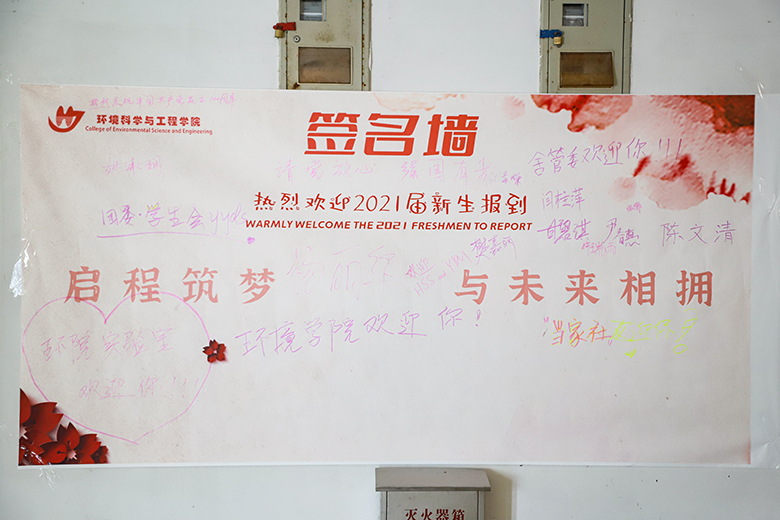 环境科学与工程学院
College of Environmental Science and Engineering
签名墙
请党放心 强国有我
舍管委欢迎你!!!
热烈欢迎2021届新生报到
WARMLY WELCOME THE 2021 FRESHMEN TO REPORT
团委·学生会yyds
陈文清
启程筑梦 与未来相拥
环境学院欢迎你!
环院实验室
欢迎你!!!
当家社欢迎你
灭火器箱